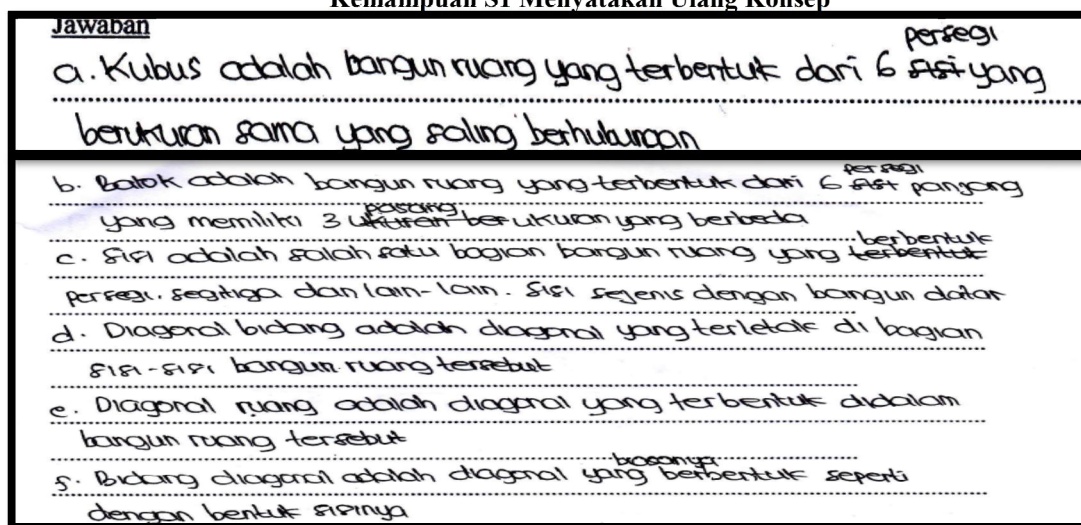 Kemampuan S1 Menyatakan Ulang Konsep
Jawaban
persegi
a. Kubus adalah bangun ruang yang terbentuk dari 6 sisi yang
berukuran sama yang saling berhubungan
persegi
b. Balok adalah bangun ruang yang terbentuk dari 6 sisi panjang
pasang
yang memiliki 3 ukuran berukuran yang berbeda
berbentuk
c. Sisi adalah salah satu bagian bangun ruang yang terbentuk
persegi, segitiga dan lain-lain. Sisi sejenis dengan bangun datar
d. Diagonal bidang adalah diagonal yang terletak di bagian
sisi-sisi bangun ruang tersebut
e. Diagonal ruang adalah diagonal yang terbentuk didalam
bangun ruang tersebut
biasanya
f. Bidang diagonal adalah diagonal yang berbentuk seperti
dengan bentuk sisinya